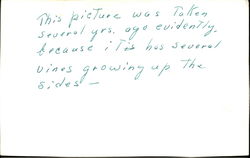 This picture was Taken
several yrs. ago evidently.
because iTis has several
vines growing up The
sides —